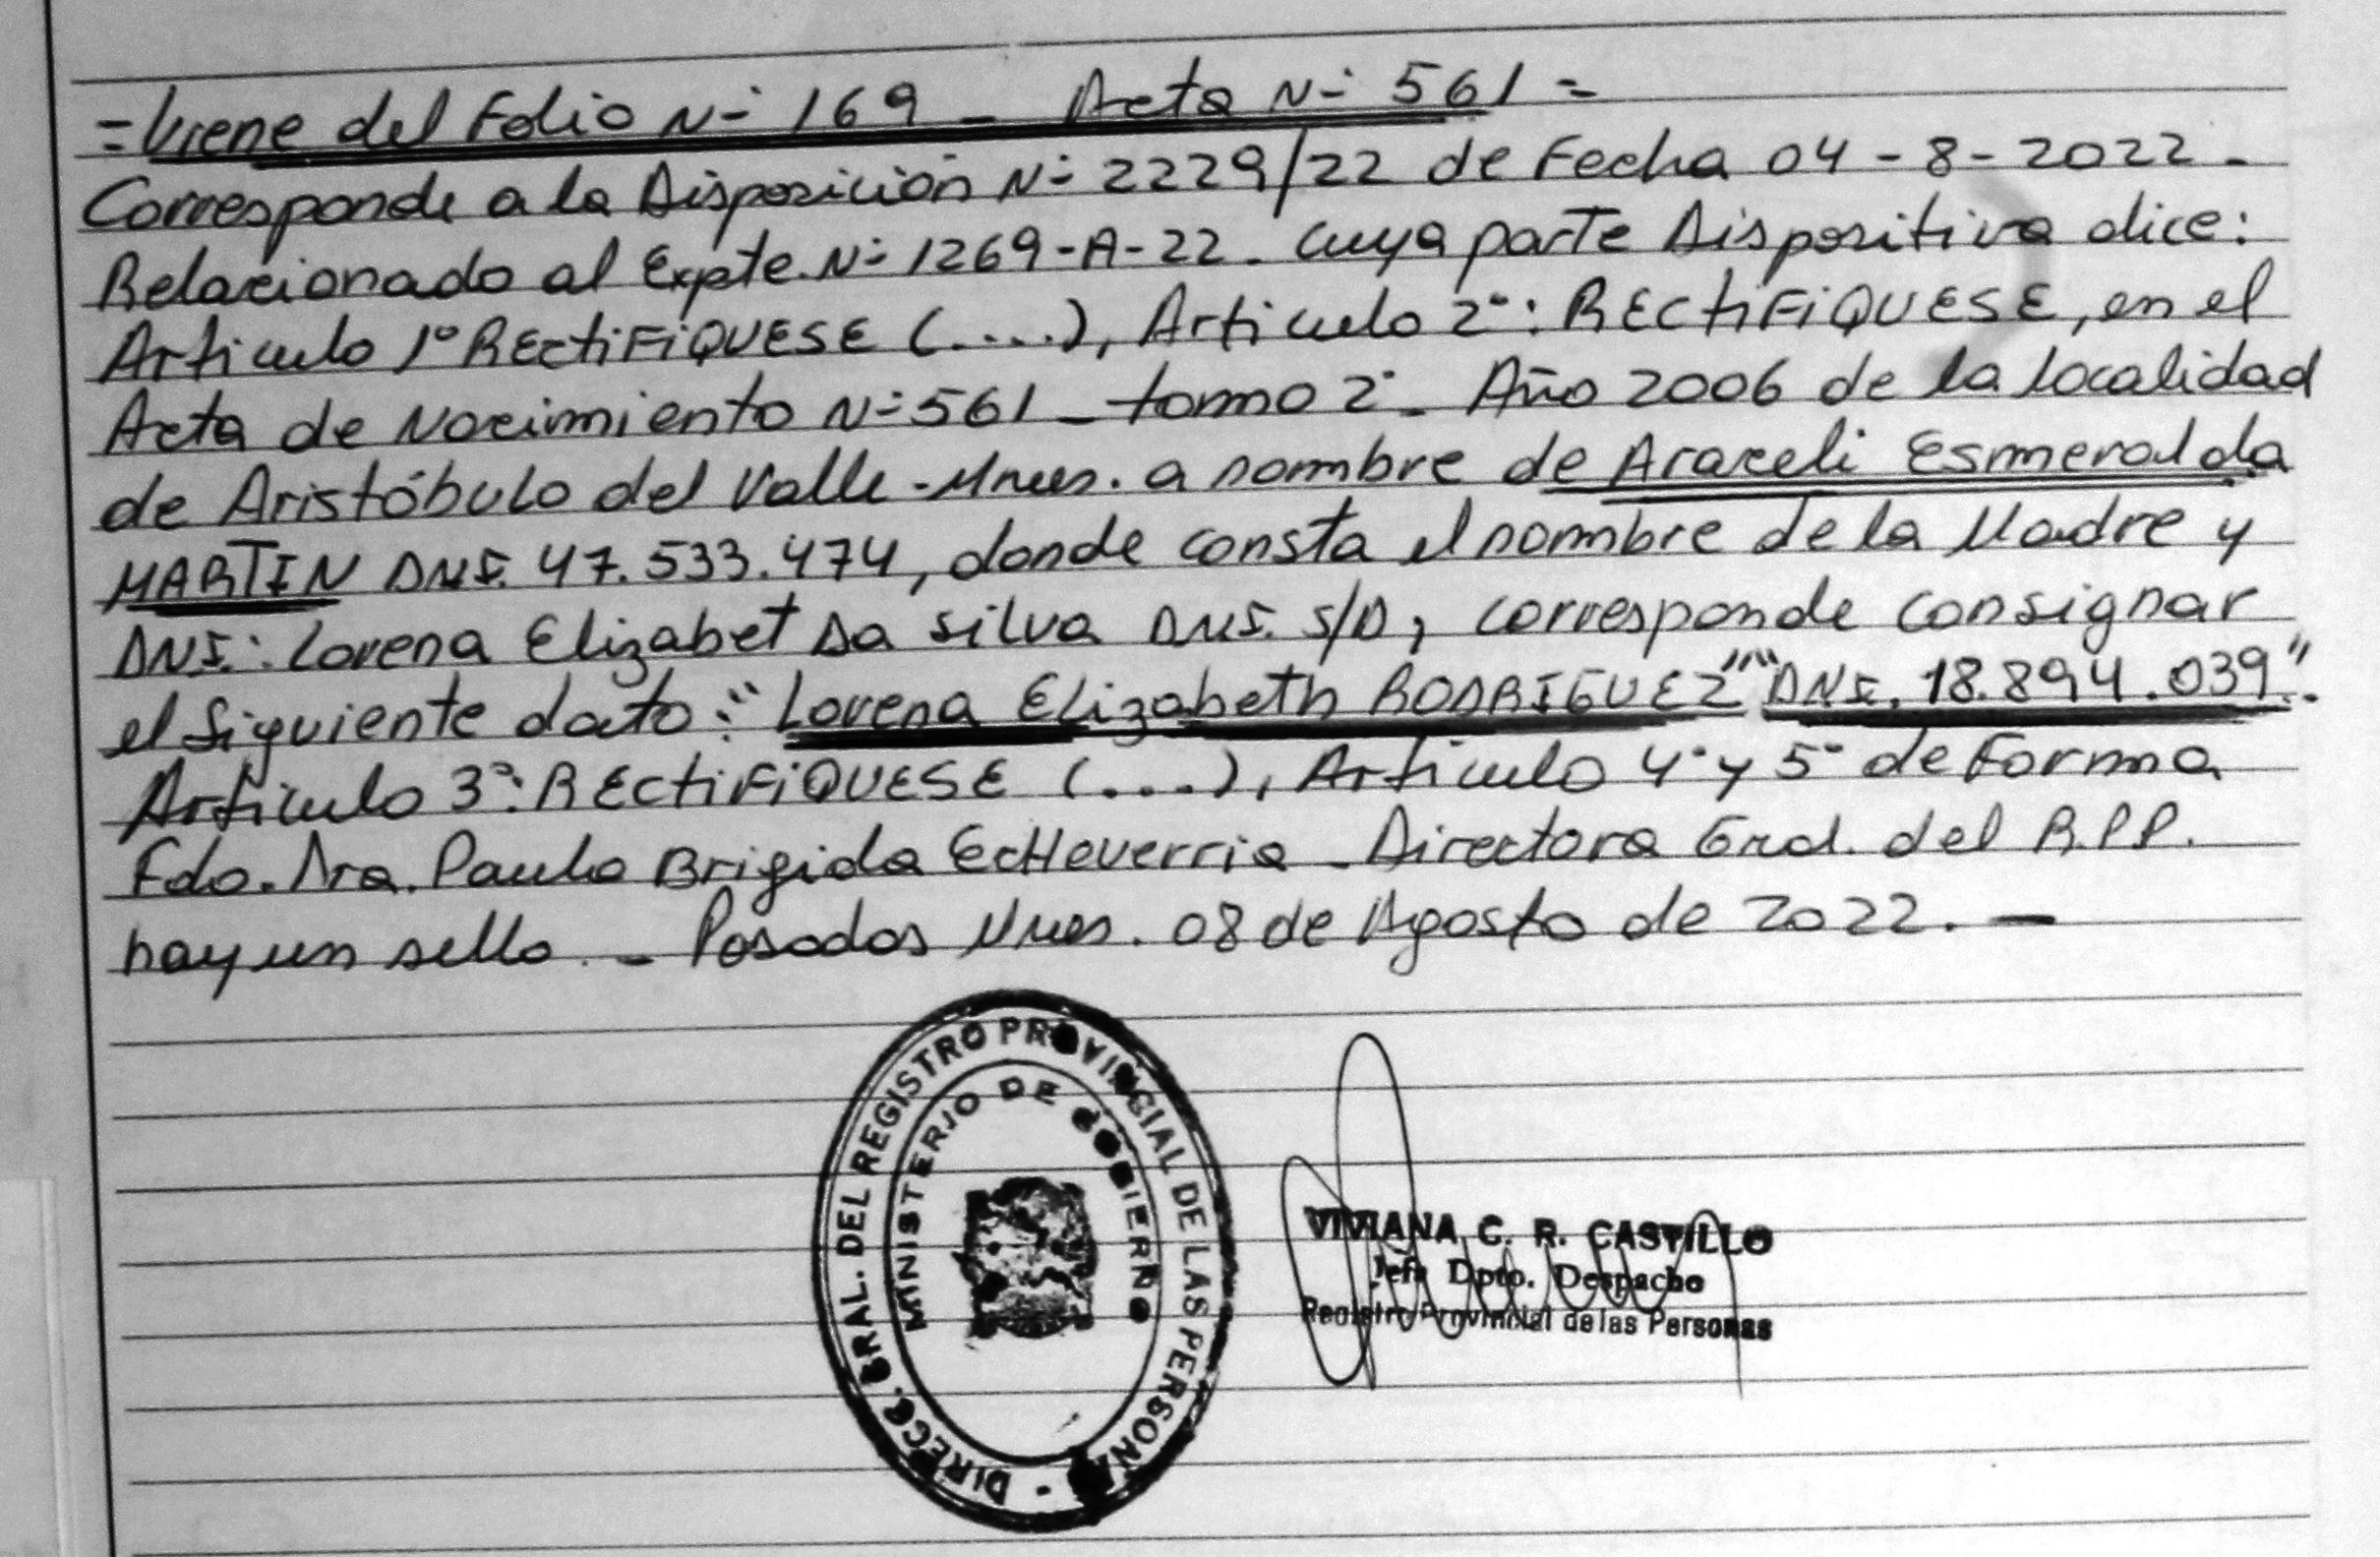 =Viene del Folio N- 169 - Acta N- 561 =
Corresponde a la Disposición N- 2229/22 de Fecha 04-8-2022.
Relacionado al Expte. N- 1269-A-22. cuya parte Dispositiva dice:
Articulo 1° RECtiFiQUESE (....), Articulo 2°: RECtiFiQUESE, en el
Acta de Nacimiento N- 561 - tomo 2°- Año 2006 de la localidad
de Aristóbulo del Valle - Mnes. a nombre de Araceli Esmeralda
MARTIN DNI. 47.533.474, donde consta el nombre de la Madre y
DNI.: Lorena Elizabet Da Silva DNI. S/D, corresponde consignar
el siguiente dato: "Lorena Elizabeth RODRIGUEZ" "DNI. 18.894.039".
Articulo 3°: RECtiFiQUESE (....), Articulo 4° y 5° de Forma
Fdo. Dra. Paula Brigida EcHeverria - Directora Gral. del R.P.P.
hay un sello. - Posadas Mnes. 08 de Agosto de 2022. -
DIRECC. GRAL. DEL REGISTRO PROVINCIAL DE LAS PERSONAS
MINISTERIO DE GOBIERNO
VIVIANA C. R. CASTILLO
Jefa Dpto. Despacho
Registro Provincial de las Personas